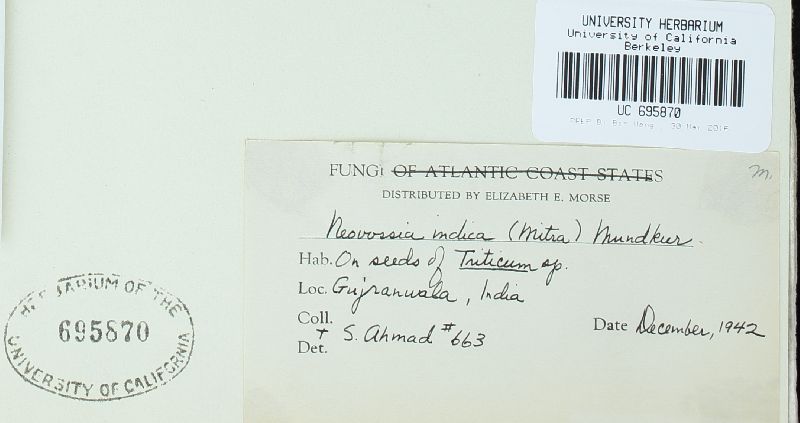 UNIVERSITY HERBARIUM
University of California
Berkeley
UC 695870
FUNGI OF ATLANTIC COAST STATES
M.
DISTRIBUTED BY ELIZABETH E. MORSE
Neovossia indica (Mitra) Mundkur.
Hab. On seeds of Triticum sp.
Loc. Gujranwala, India
Coll.
+ S. Ahmad #663
Det.
Date December, 1942
HERBARIUM OF THE
695870
UNIVERSITY OF CALIFORNIA